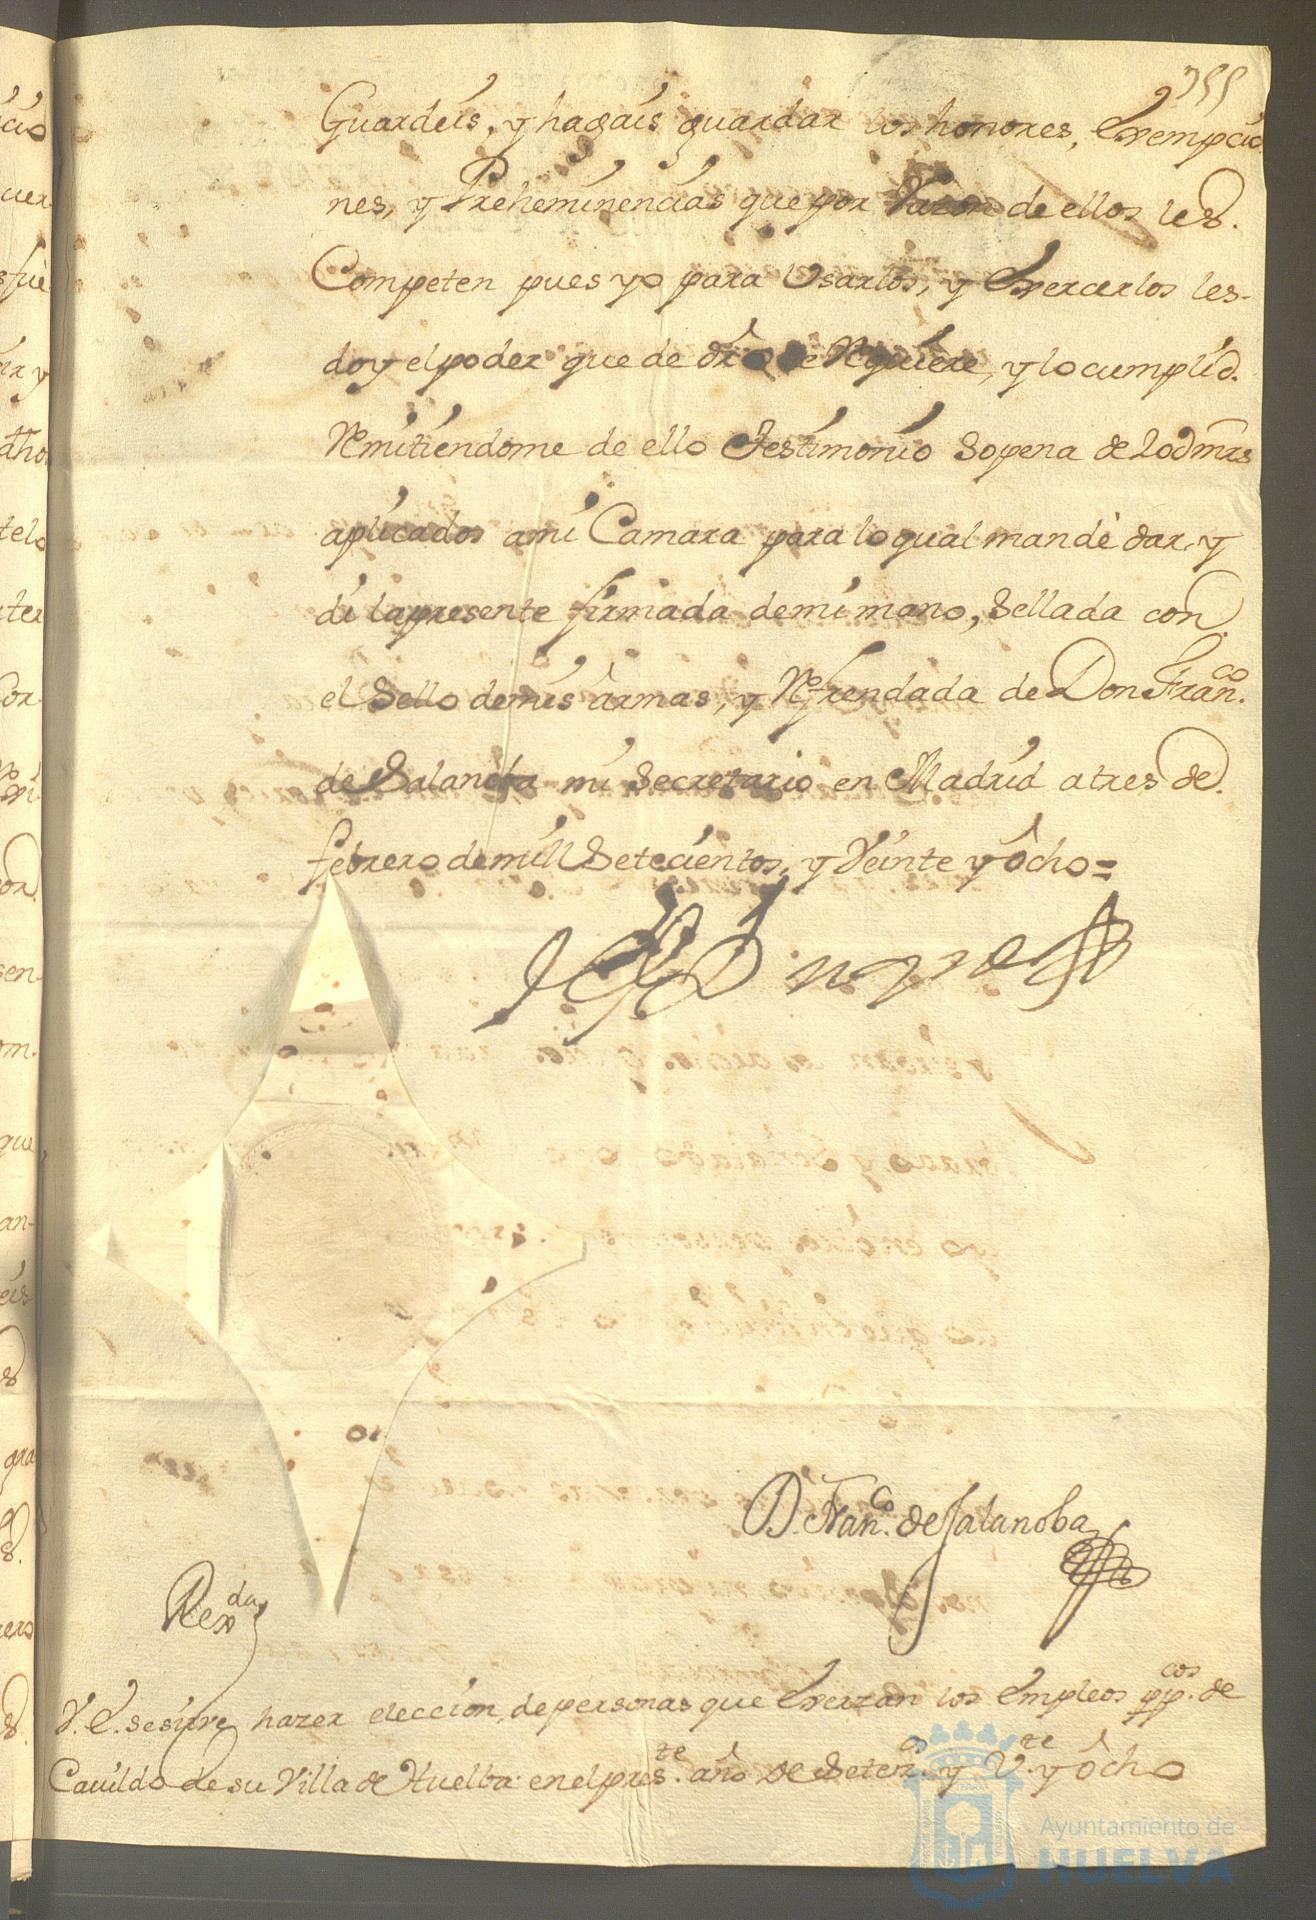 355
Guardeis, y hagais guardar los honores, Exempcio
nes, y Preheminencias que por Razon de ellos les.
Competen pues yo para Usarlos, y Exercerlos les-
doy el poder que de dro se Requiere, y lo cumplid.
Remitiendome de ello Testimonio so pena de 20d mrs
aplicados a mi Camara para lo qual mandè dar, y
di la presente firmada de mi mano, Sellada con
el Sello de mis armas, y Refrendada de Don Franco.
de Salanoba mi Secretario en Madrid a tres de
febrero de mill Setecientos, y Veinte y ôcho =
D. Franco. de Salanoba
Rexda
V. E. se sirve hazer eleccion, de personas que Exerzan los Empleos ppcos. de
Cavildo de su Villa de Huelba en el preste. año de Setecos. y Vte. y ôcho
Ayuntamiento de
HUELVA